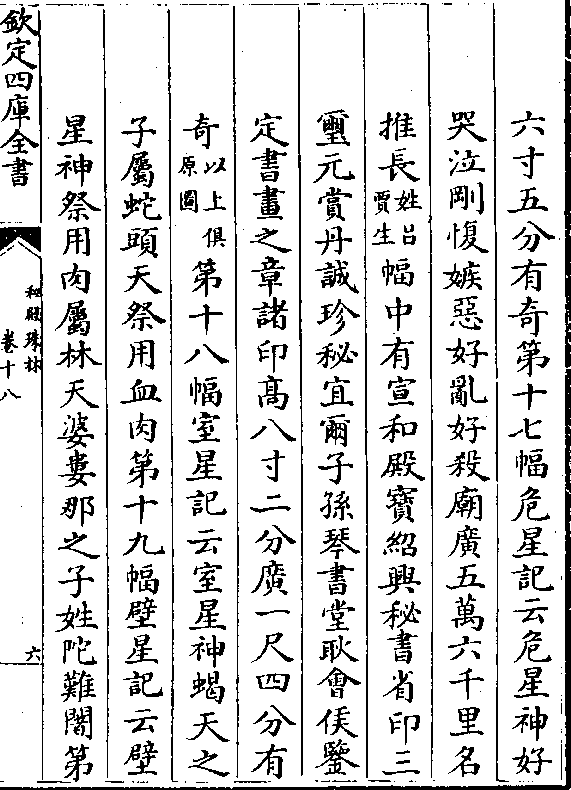 六寸五分有奇第十七幅危星記云危星神好
哭泣剛愎嫉惡好亂好殺廟廣五萬六千里名
推長姓呂賈生幅中有宣和殿寶紹興秘書省印三
璽元賞丹誠珍秘宜爾子孫琴書堂耿會侯鑒
定書畫之章諸印髙八寸二分廣一尺四分有
奇以上俱原圖第十八幅室星記云室星神蝎天之
子屬蛇頭天祭用血肉第十九幅壁星記云壁
星神祭用肉屬林天婆婁那之子姓陀難闍第
欽定四庫全書
秘殿珠林
卷十八
六